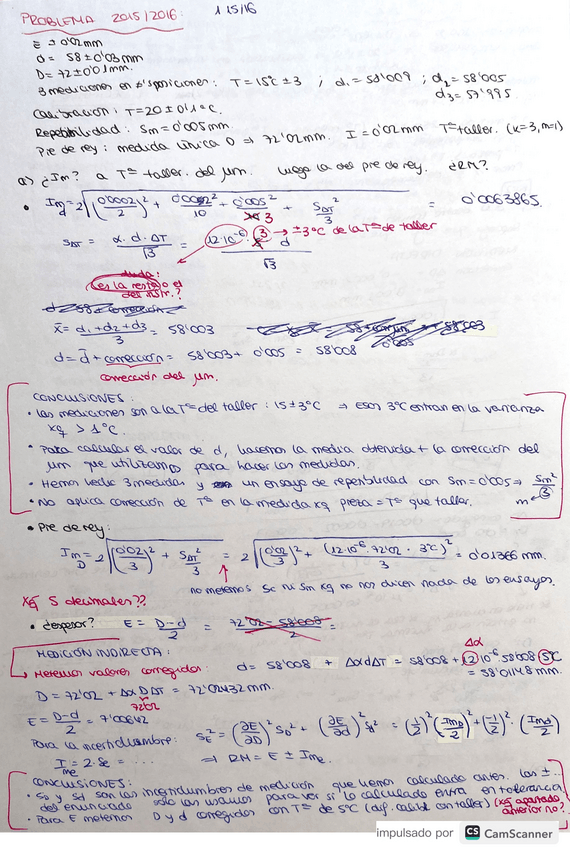 PROBLEMA 2015/2016: 1 15/16
E ± 0'02mm
d = 58 ± 0'03mm
D = 72 ± 0'01mm.
3 mediciones en ≠ posiciones: T = 15ºC ± 3 ; d₁ = 58'009 ; d₂ = 58'005
d₃ = 57'995
Calibración: T = 20 ± 0'1 ºC.
Repetibilidad: Sm = 0'005mm
Pie de rey: medida única D → 72'02mm. I = 0'02mm Tª taller. (k=3, m=1)
a) ¿Im? a Tª taller. del μm. Luego la del pie de rey. ¿RM?
• Im d = 2 √( (0'0002/2)² + 0'002²/10 + 0'005²/3 + S∆T²/3 ) = 0'0063865.
S∆T = α·d·∆T/√3 = 12·10⁻⁶·3·d/√3 → ±3ºC de la Tª de taller
duda:
¿es la resta o el
x̄ = d₁+d₂+d₃/3 = 58'003
d = d̄ + corrección = 58'003 + 0'005 = 58'008
corrección del μm.
CONCLUSIONES:
• Las mediciones son a la Tª del taller: 15 ± 3ºC → esos 3ºC entran en la varianza
xq > 1ºC.
• Para calcular el valor de d, hacemos la media obtenida + la corrección del
μm que utilizamos para hacer las medidas.
• Hemos hecho 3 medidas y un ensayo de repetibilidad con Sm = 0'005 → Sm²/3
m
• No aplica corrección de Tª en la medida xq pieza = Tª que taller.
• Pie de rey:
Im D = 2 √( (0'02/3)² + S∆T²/3 ) = 2 √( (0'02/3)² + (12·10⁻⁶·72'02·3ºC)²/3 ) = 0'01366 mm.
no metemos Sc ni Sm xq no nos dicen nada de los ensayos.
Xq 5 decimales??
• ¿espesor? E = D-d/2 = 72'02 - 58'008/2 =
MEDICIÓN INDIRECTA:
∆α
→ Metemos valores corregidos: d = 58'008 + ∆αd∆T = 58'008 + 12·10⁻⁶·58'008·5ºC
= 58'01148 mm
D = 72'02 + ∆α D ∆T = 72'02432 mm.
72'02
E = D-d/2 = 7'00642
Para la incertidumbre: S_E² = (∂E/∂D)² S_D² + (∂E/∂d)² S_d² = (1/2)² (Im D/2)² + (-1/2)² · (Im d/2)²
I me = 2·Se = ... → RM = E ± Ime.
CONCLUSIONES:
• S_D y S_d son las incertidumbres de medición que hemos calculado antes. Las ±...
del enunciado solo las usamos para ver si lo calculado entra en tolerancia
• Para E metemos D y d corregidos con Tª de 5ºC (dif. calibr con taller) (xq apartado
anterior no?
impulsado por CS CamScanner